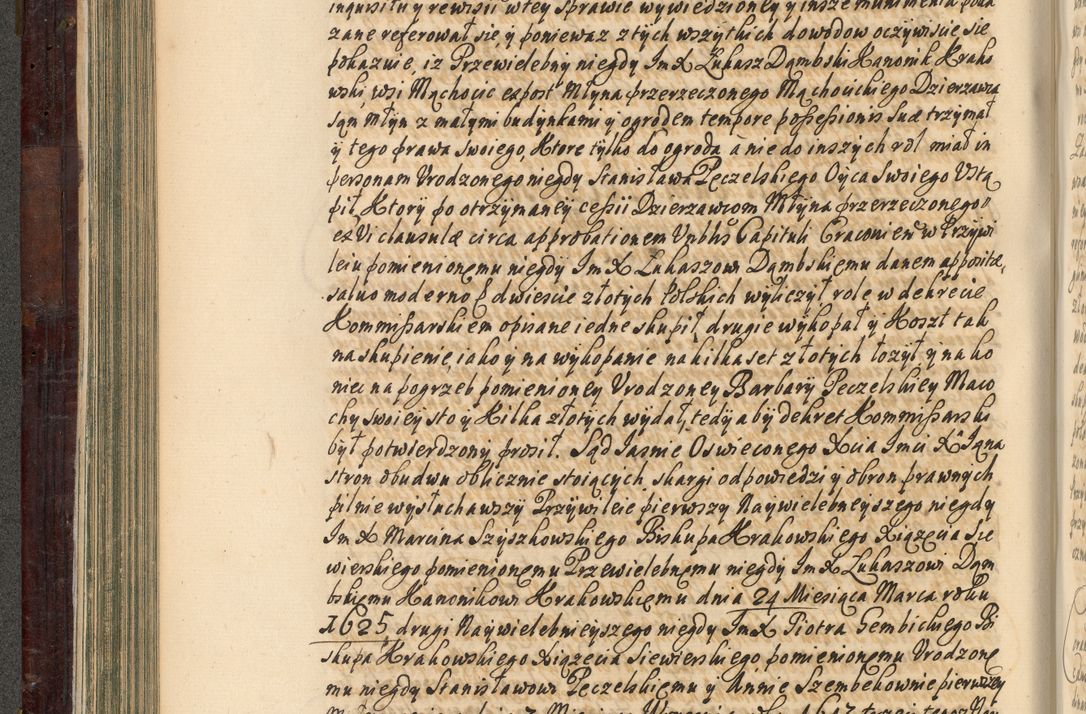 inquisity y rewisii w tey sprawie wywiedzioney y insze munimenta poka
zane referował się, y poniewaz z tych wszytkich dowodow oczywiscie się
pokazuie, iz Przewielebny niegdy Im X Łukasz Dąmbski Kanonik Krako
wski, wsi Mąchocic expost Młyna przerzeczonego Mąchocickiego Dzierzawca
sąm młyn z małymi budynkami y ogrodem tempore possessionis suæ trzymał
y tego prawa swoiego, Ktore tylko do ogroda a nie do inszych rol miał in
personam Urodzonego niegdy Stanisława Pęczelskiego Oyca Swoiego Ustą
pił, Ktory po otrzymaney cessii Dzierzawcom Młyna przerzeczonego
ex Vi clausulæ circa approbationem Vnbhs Capituli Cracouien w Przywi
leiu pomienionemu niegdy Im X Łukaszowi Dąmbskiemu danem appositæ,
saluo moderno dwiescie złotych Polskich wyliczył role w dekrecie
Kommissarskiem opisane iedne skupił, drugie wykopał y Koszt tak
na skupienie, iako y na wykopanie na kilka set złotych łozył y na ko
niec na pogrzeb pomienioney Urodzoney Barbary Peczelskiey Maco
chy swoiey sto y Kilka złotych wydał, tedy aby dekret Kommissarski
był potwierdzony prosił. Sąd Iasnie Oswieconego Xcia Imci X Iąna
stron obudwu oblicznie stoiących, skargi odpowiedzi y obron prawnych
pilnie wysłuchawszy Przywileie pierwszy Naywielebnieyszego niegdy
Im X Marcina Szyszkowskiego Biskupa Krakowskiego Xiązęcia Sie
wierskiego pomienionemu Przewielebnemu niegdy Im X Łukaszowi Dąm
bskiemu Kanonikowi Krakowskiemu dnia 24 Miesiąca Marca roku
1625, drugi Naywielebnieyszego niegdy Im X Piotra Gembickiego Bi
skupa Krakowskiego Xiązęcia Siewierskiego pomienionemu Urodzone
mu niegdy Stanisławowi Pęczelskiemu y Annie Szembekownie pierwszey